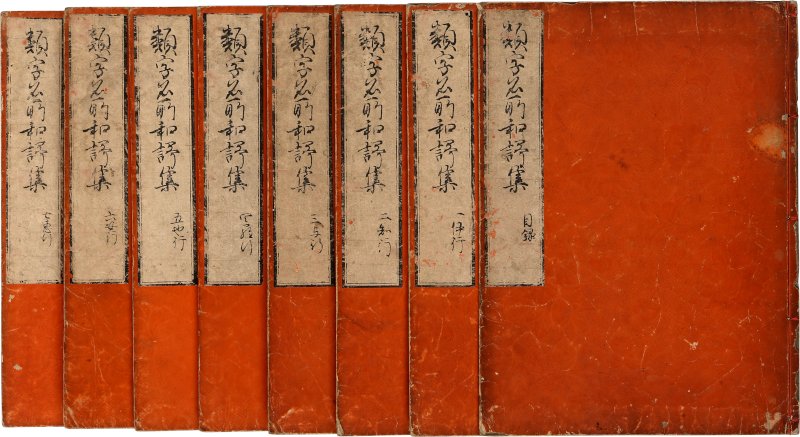 類字名所和謌集 目録
類字名所和謌集 一 伊行
類字名所和謌集 二
類字名所和謌集 三 与行
類字名所和謌集 四
類字名所和謌集 五 也行
類字名所和謌集 六 安行
類字名所和謌集 七